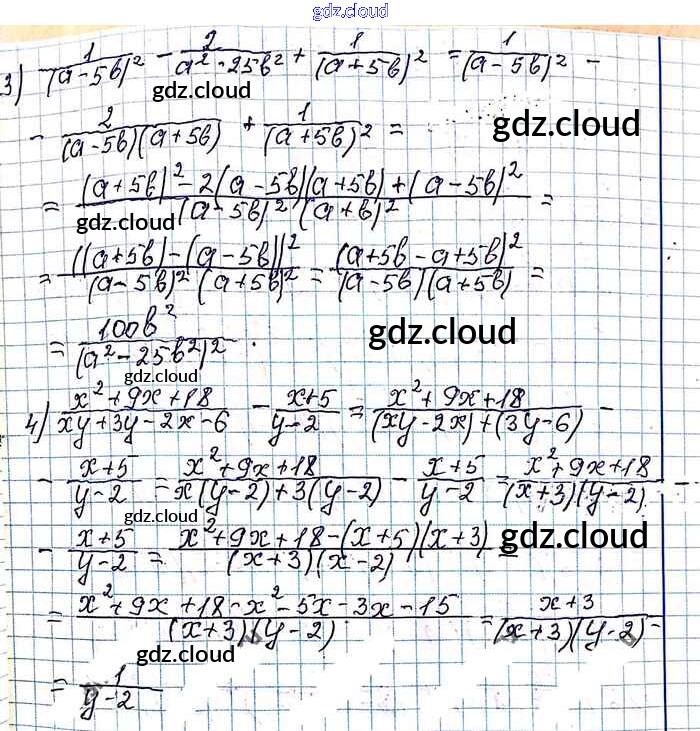 gdz.cloud
3) 1/(a-5b)² - 2/(a²-25b²) + 1/(a+5b)² = 1/(a-5b)² -
gdz.cloud
- 2/((a-5b)(a+5b)) + 1/(a+5b)² =
gdz.cloud
= ((a+5b)² - 2(a-5b)(a+5b) + (a-5b)²)/((a-5b)²(a+b)²) =
gdz.cloud
= ((a+5b)-(a-5b))²/((a-5b)²(a+5b)²) = (a+5b-a+5b)²/((a-5b)(a+5b)) =
= 100b²/(a²-25b²)².
gdz.cloud
gdz.cloud
4) (x²+9x+18)/(xy+3y-2x-6) - (x+5)/(y-2) = (x²+9x+18)/((xy-2x)+(3y-6)) -
- (x+5)/(y-2) = (x²+9x+18)/(x(y-2)+3(y-2)) - (x+5)/(y-2) = (x²+9x+18)/((x+3)(y-2)) -
gdz.cloud
- (x+5)/(y-2) = (x²+9x+18-(x+5)(x+3))/((x+3)(x-2)) =
gdz.cloud
= (x²+9x+18-x²-5x-3x-15)/((x+3)(y-2)) = (x+3)/((x+3)(y-2)) =
gdz.cloud
= 1/(y-2)